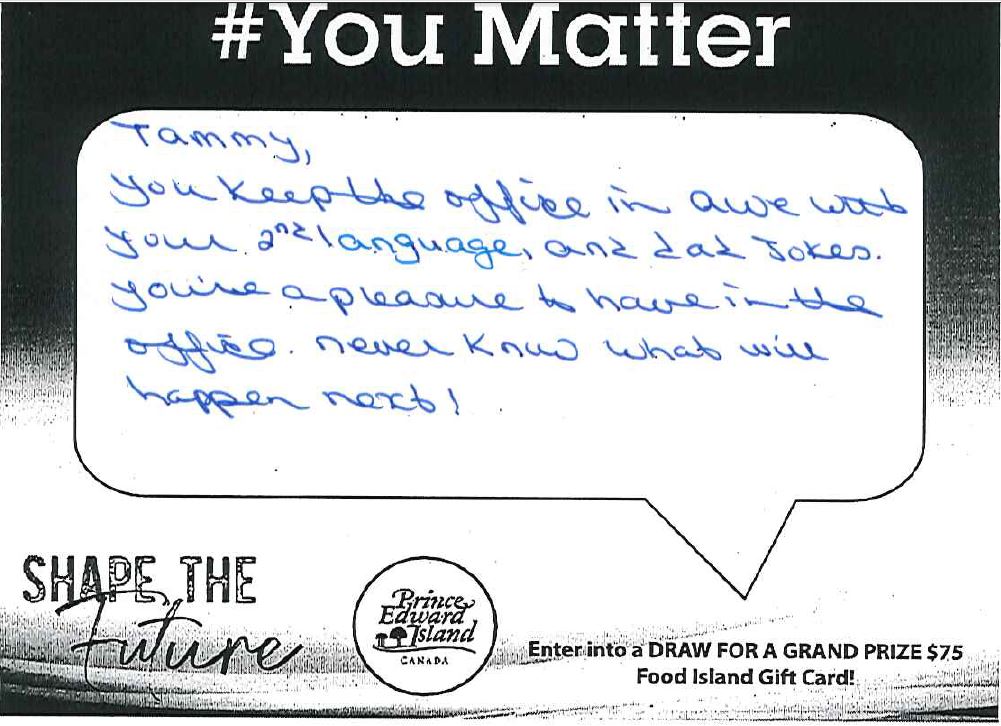 #You Matter
Tammy,
you keep the office in awe with
your 2nd language, and dad Jokes.
you're a pleasure to have in the
office. never know what will
happen next!
SHAPE THE
Future
Prince
Edward
Island
CANADA
Enter into a DRAW FOR A GRAND PRIZE $75
Food Island Gift Card!